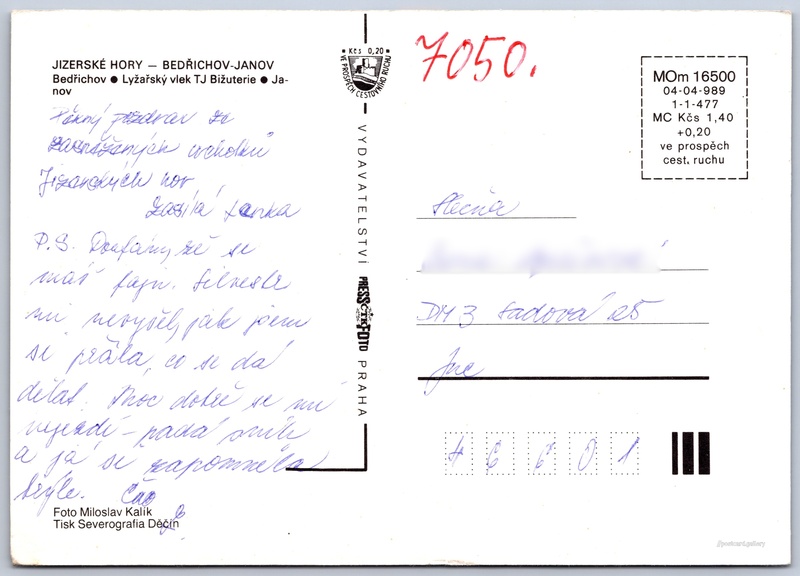 JIZERSKÉ HORY — BEDŘICHOV-JANOV
Bedřichov ● Lyžařský vlek TJ Bižuterie ● Ja-
nov
Pěkný pozdrav ze
zasněžených vrcholků
Jizerských hor
zasílá Lenka
P.S. Doufám, že se
máš fajn. Silvestr
mi nevyšel, jak jsem
si přála, co se dá
dělat. Moc dobře se mi
nejezdí – padá sníh
a já si zapomněla
brýle. Čao
Foto Miloslav Kalík
Tisk Severografia Děčín
Kčs 0,20
VE PROSPĚCH CESTOVNÍHO RUCHU
VYDAVATELSTVÍ
PRESSFOTO
ČTK
PRAHA
7050.
MOm 16500
04-04-989
1-1-477
MC Kčs 1,40
+0,20
ve prospěch
cest. ruchu
Slečna
DM 3 Sadová 25
Jnc
46601